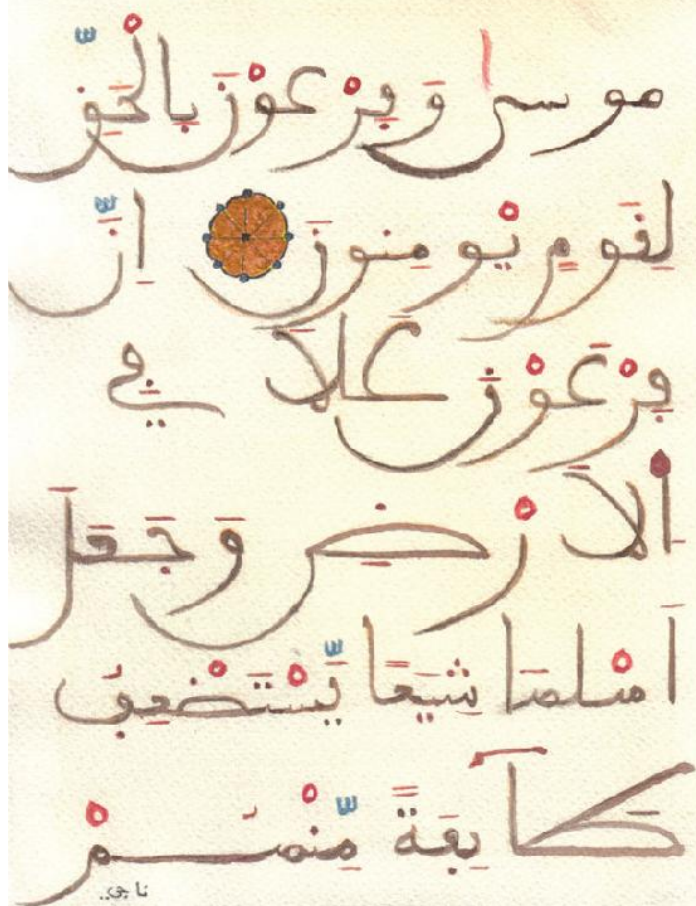 مُوسىٰ وَفِرْعَوْنَ بِالْحَقِّ
لِقَوْمٍ يُومِنُونَ إِنَّ
فِرْعَوْنَ عَلَا فِي
اَلَارْضِ وَجَعَلَ
أَهْلَهَا شِيَعًا يَّسْتَضْعِفُ
طَآيِفَةً مِّنْهُمْ
ناجي..